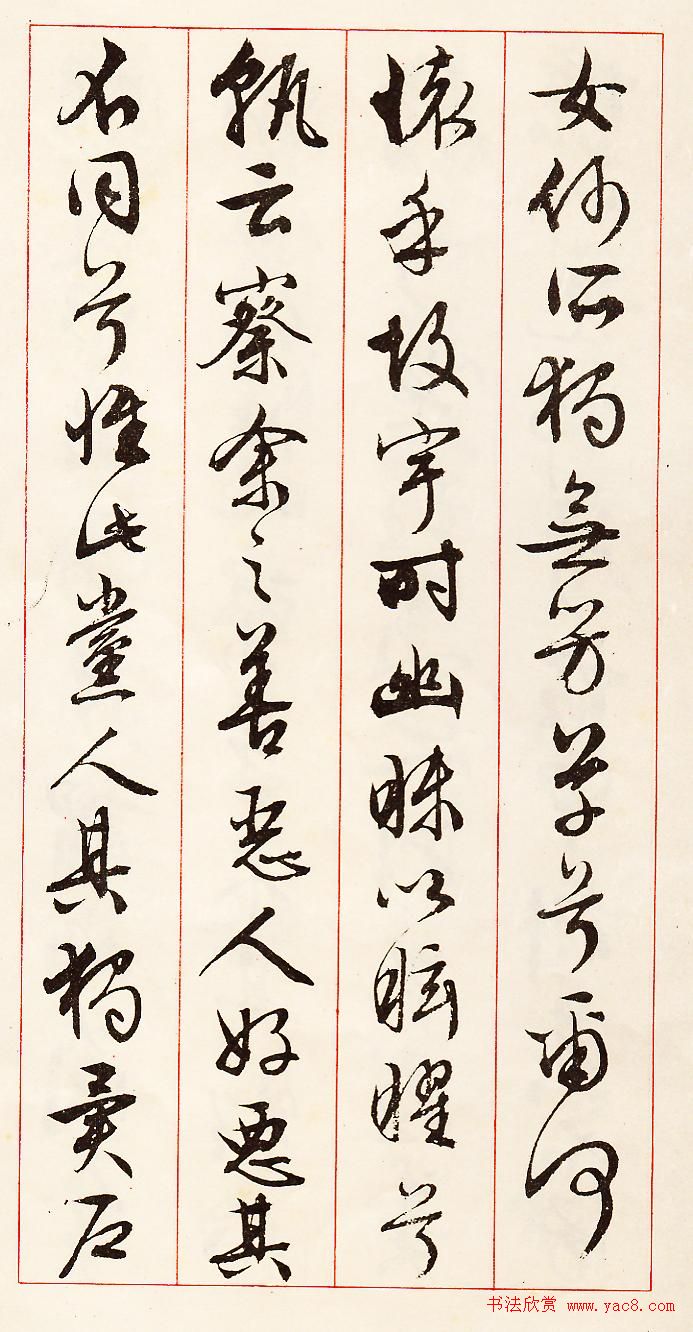 女何所獨無芳草兮爾何
懷乎故宇時幽昧以眩曜兮
孰云察余之善惡人好惡其
不同兮惟此黨人其獨異戶
书法欣赏 www.yac8.com